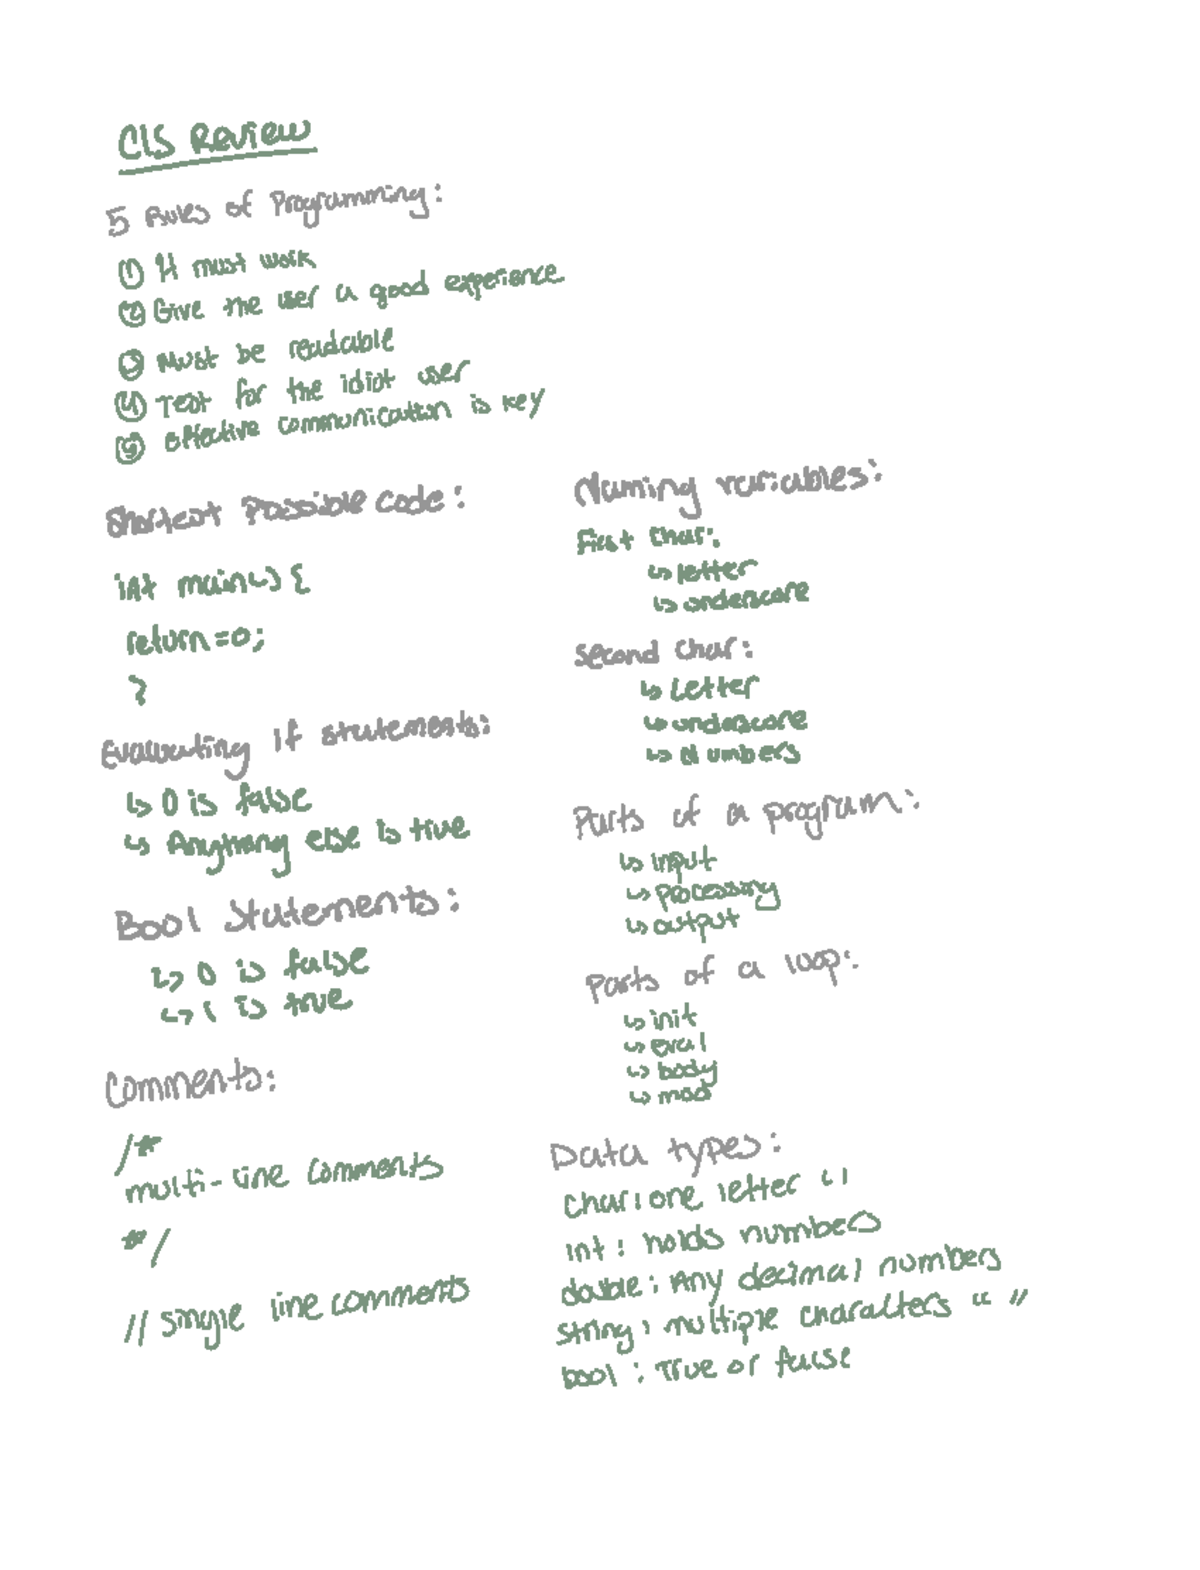 CIS Review
5 Rules of Programming:
① It must work
② Give the user a good experience
③ Must be readable
④ Test for the idiot user
⑤ effective communication is key
Shortest Possible code:
int main() {
return=0;
}
Evaluating if statements:
↳ 0 is false
↳ Anything else is true
Bool Statements:
↳ 0 is false
↳ 1 is true
Comments:
/*
multi-line comments
*/
// single line comments
Naming variables:
First char:
↳ letter
↳ underscore
Second char:
↳ Letter
↳ underscore
↳ Numbers
Parts of a program:
↳ input
↳ processing
↳ output
Parts of a loop:
↳ init
↳ eval
↳ body
↳ mod
Data types:
char: one letter ' '
int: holds numbers
double: Any decimal numbers
string: multiple characters " "
bool: True or false